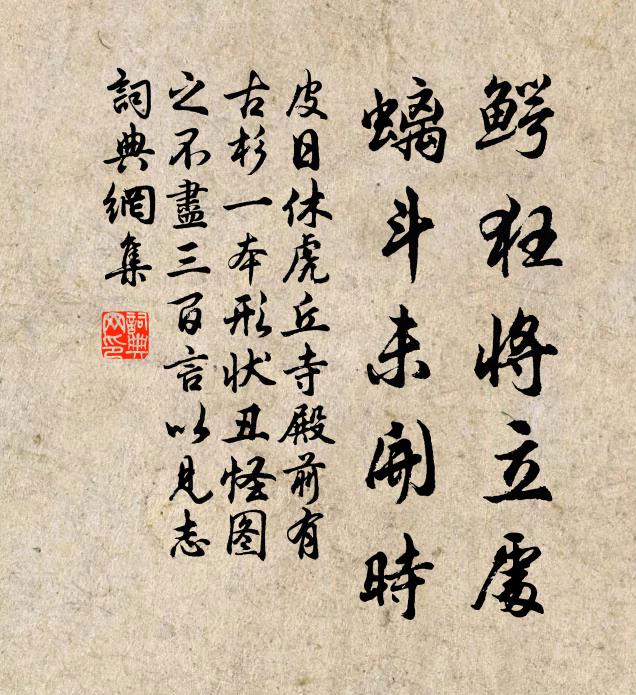 鰐狂將立處
螭斗未開時
皮日休虎丘寺殿前有
古杉一本形狀丑怪图
之不盡三百言以見志
詞典網集
詞典网印